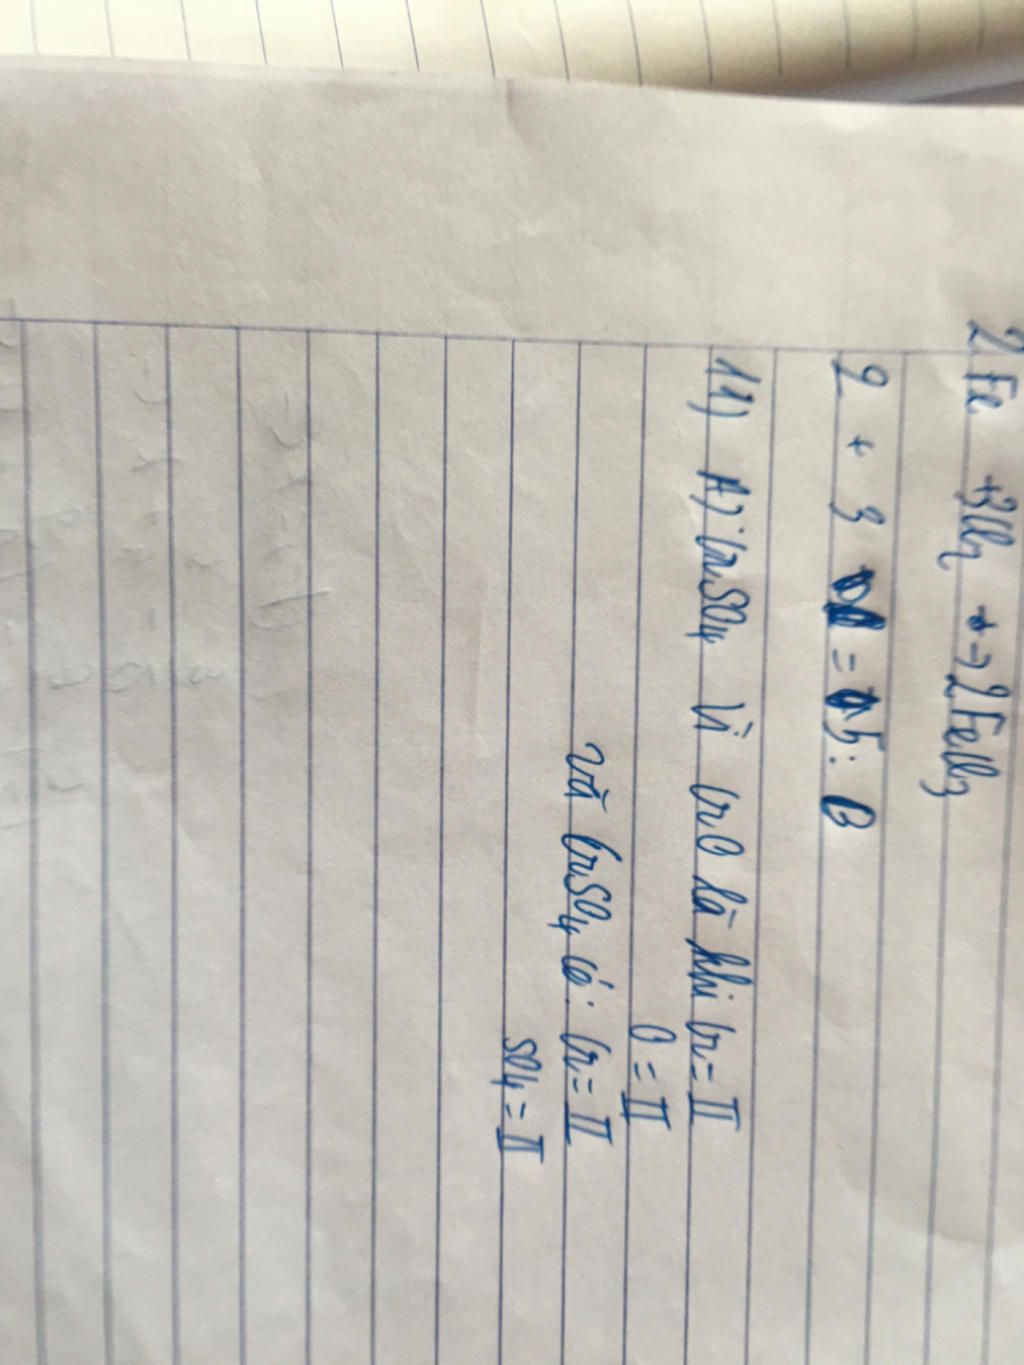 2Fe +3Cl2 → 2FeCl3
2 + 3 = 5: B
11) A) CrSO4 Vì CrO là khi Cr = II
O = II
và CrSO4 có: Cr = II
SO4 = II